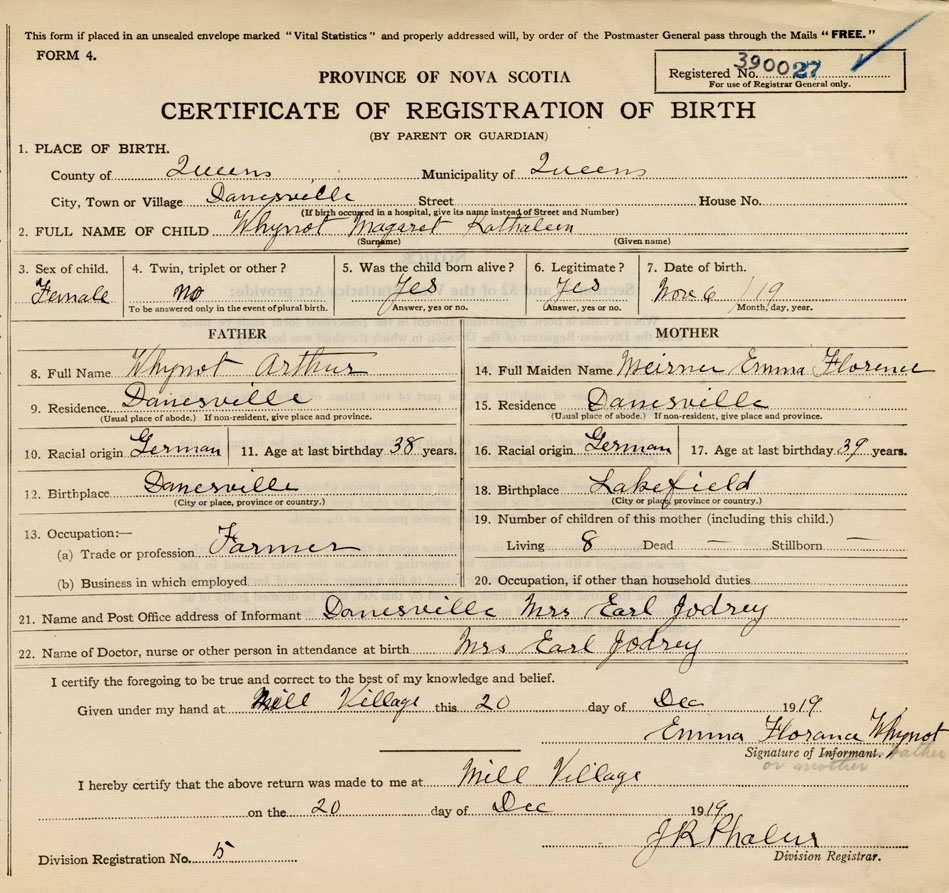 This form if placed in an unsealed envelope marked "Vital Statistics" and properly addressed will, by order of the Postmaster General pass through the Mails "FREE."
FORM 4.
Registered No. 390027
For use of Registrar General only.
PROVINCE OF NOVA SCOTIA
CERTIFICATE OF REGISTRATION OF BIRTH
(BY PARENT OR GUARDIAN)
1. PLACE OF BIRTH.
County of Queens Municipality of Queens
City, Town or Village Danesville Street House No.
(If birth occurred in a hospital, give its name instead of Street and Number)
2. FULL NAME OF CHILD Whynot Magaret Kathaleen
(Surname) (Given name)
3. Sex of child. 4. Twin, triplet or other? 5. Was the child born alive? 6. Legitimate? 7. Date of birth.
Female no Yes Yes Nov 6 /19
To be answered only in the event of plural birth. Answer, yes or no. Answer, yes or no. Month, day, year.
FATHER MOTHER
8. Full Name Whynot Arthur 14. Full Maiden Name Emma Florence
9. Residence. Danesville 15. Residence Danesville
(Usual place of abode.) If non-resident, give place and province. (Usual place of abode.) If non-resident, give place and province.
10. Racial origin German 11. Age at last birthday 38 years. 16. Racial origin German 17. Age at last birthday 39 years.
12. Birthplace Danesville 18. Birthplace Lakefield
(City or place, province or country.) (City or place, province or country.)
13. Occupation:— 19. Number of children of this mother (including this child.)
(a) Trade or profession Farmer Living 8 Dead — Stillborn —
(b) Business in which employed 20. Occupation, if other than household duties
21. Name and Post Office address of Informant Danesville Mrs Earl Jodrey
22. Name of Doctor, nurse or other person in attendance at birth Mrs Earl Jodrey
I certify the foregoing to be true and correct to the best of my knowledge and belief.
Given under my hand at Mill Village this 20 day of Dec 1919
Emma Florance Whynot
Signature of Informant. father
or mother
I hereby certify that the above return was made to me at Mill Village
on the 20 day of Dec 1919
J R
Division Registrar.
Division Registration No. 5